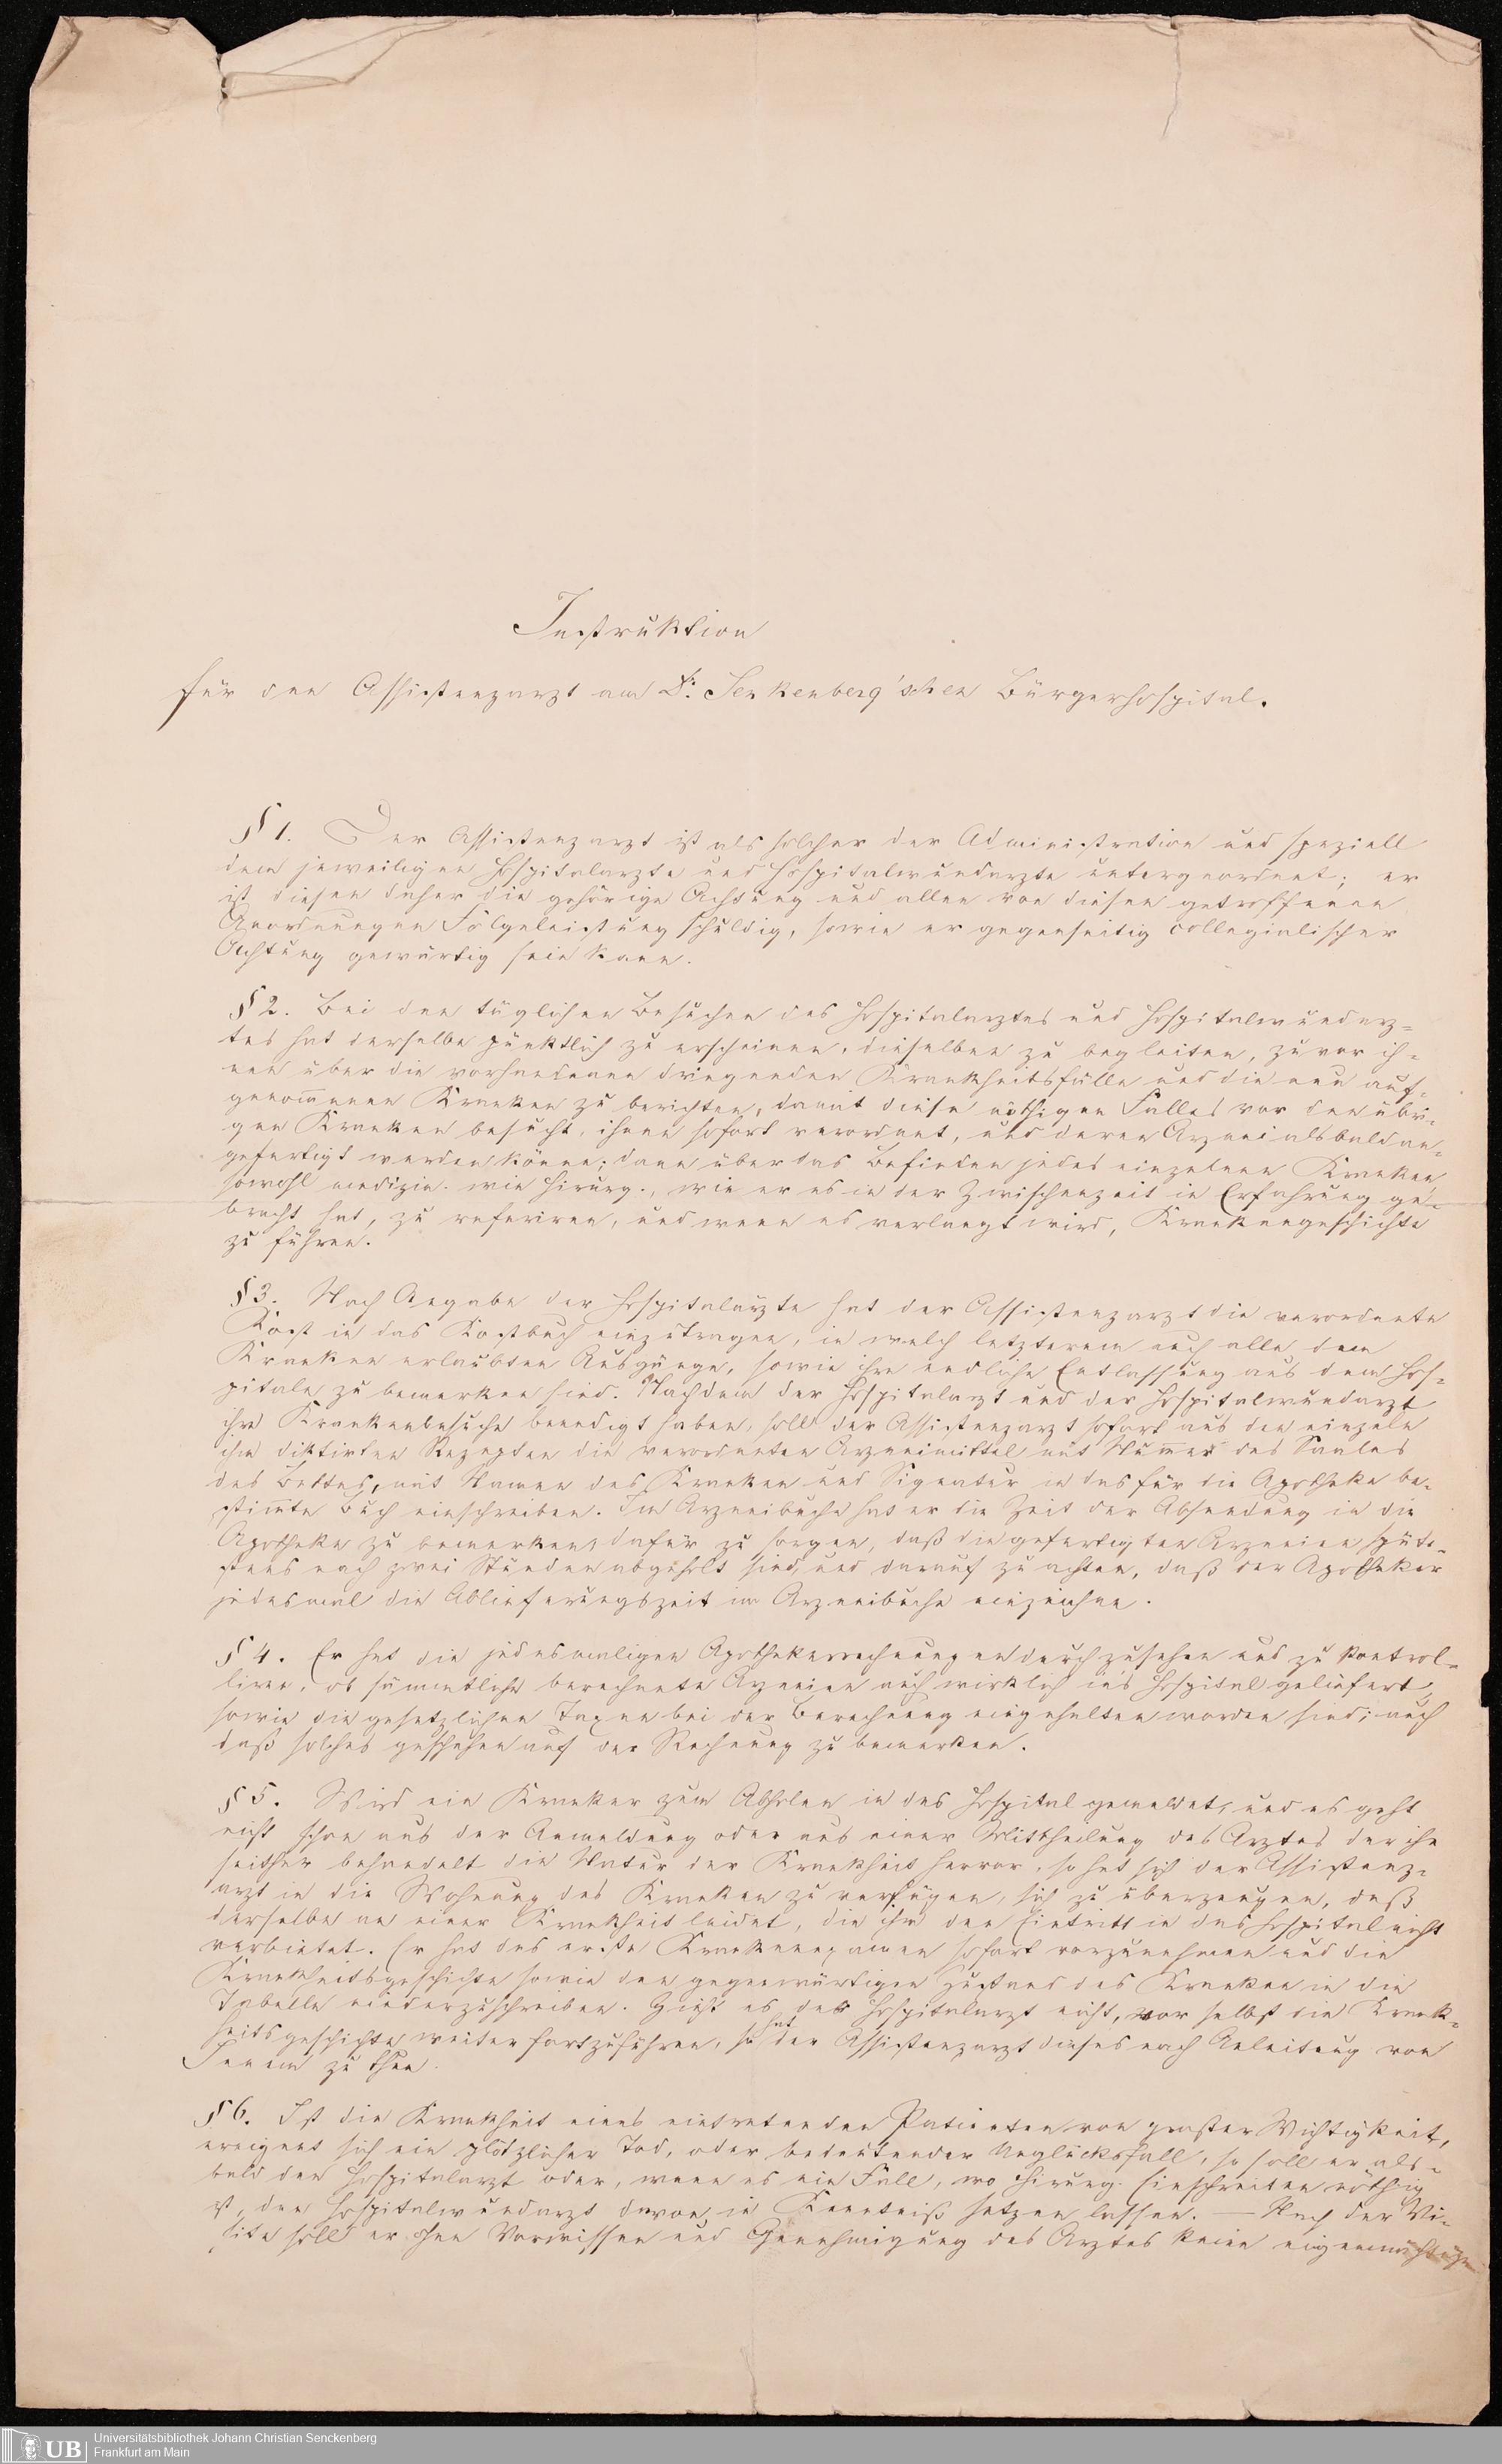 Instruktion
für den Assistenzarzt am Dr. Senkenberg'schen Bürgerhospital.
§ 1. Der Assistenzarzt ist als solcher der Administration und speziell
dem jeweiligen Hospitalarzte und Hospitalwundarzte untergeordnet; er
ist diesen daher die gehörige Achtung und allen von diesen getroffenen
Anordnungen Folgeleistung schuldig, sowie er gegenseitig collegialischer
Achtung gewärtig sein kann.
§ 2. Bei den täglichen Besuchen des Hospitalarztes und Hospitalwundarz-
tes hat derselbe pünktlich zu erscheinen, dieselben zu begleiten, zuvor ih-
nen über die vorhandenen dringenden Krankheitsfälle und die neu auf-
genommenen Kranken zu berichten, damit diese nöthigen Falles vor den übri-
gen Kranken besucht, ihnen sofort verordnet, und deren Arznei alsbald an-
gefertigt werden könne; dann über das Befinden jedes einzelnen Kranken,
sowohl medizin. wie chirurg., wie er es in der Zwischenzeit in Erfahrung ge-
bracht hat, zu referiren, und wenn es verlangt wird, Krankengeschichte
zu führen.
§ 3. Nach Angabe der Hospitalärzte hat der Assistenzarzt die verordnete
Kost in das Kostbuch einzutragen, in welch letzterem auch alle dem
Kranken erlaubten Ausgänge, sowie ihre endliche Entlassung aus dem Hos-
pitale zu bemerken sind. Nachdem der Hospitalarzt und der Hospitalwundarzt
ihre Krankenbesuche beendigt haben, soll der Assistenzarzt sofort aus den einzeln
ihm diktirten Rezepten die verordneten Arzneimittel mit Nummer des Saales
des Bettes, mit Namen des Kranken und Signatur in das für die Apotheke be-
stimmte Buch einschreiben. Im Arzneibuche hat er die Zeit der Absendung in die
Apotheke zu bemerken, dafür zu sorgen, daß die gefertigten Arzneien späte-
stens nach zwei Stunden abgeholt sind, und darauf zu achten, daß der Apotheker
jedesmal die Ablieferungszeit im Arzneibuche einzeichne.
§ 4. Er hat die jedesmaligen Apothekerrechnungen durchzusehen und zu kontrol-
liren, ob sämmtliche berechnete Arzneien auch wirklich ins Hospital geliefert,
sowie die gesetzlichen Taxen bei der Berechnung eingehalten worden sind; auch
daß solches geschehen auf der Rechnung zu bemerken.
§ 5. Wird ein Kranker zum Abholen in das Hospital gemeldet, und es geht
nicht schon aus der Anmeldung oder aus einer Mittheilung des Arztes der ihn
seither behandelt die Natur der Krankheit hervor, so hat sich der Assistenz-
arzt in die Wohnung des Kranken zu verfügen, sich zu überzeugen, daß
derselbe an einer Krankheit leidet, die ihm den Eintritt in das Hospital nicht
verbietet. Er hat das erste Krankenexamen sofort vorzunehmen und die
Krankheitsgeschichte sowie den gegenwärtigen Zustand des Kranken in die
Tabelle niederzuschreiben. Zieht es der Hospitalarzt nicht vor selbst die Krank-
heitsgeschichte weiter fortzuführen, so hat der Assistenzarzt dieses nach Anleitung von
Jenem zu thun.
§ 6. Ist die Krankheit eines eintretenden Patienten von großer Wichtigkeit,
ereignet sich ein plötzlicher Tod, oder bedeutender Unglücksfall, so soll er als-
bald den Hospitalarzt oder, wenn es ein Fall, wo chirurg. Einschreiten nöthig
ist, den Hospitalwundarzt davon in Kenntniß setzen lassen. — Nach der Vi-
site soll er ohne Vorwissen und Genehmigung des Arztes keine eigenmächtigen
UB
Universitätsbibliothek Johann Christian Senckenberg
Frankfurt am Main